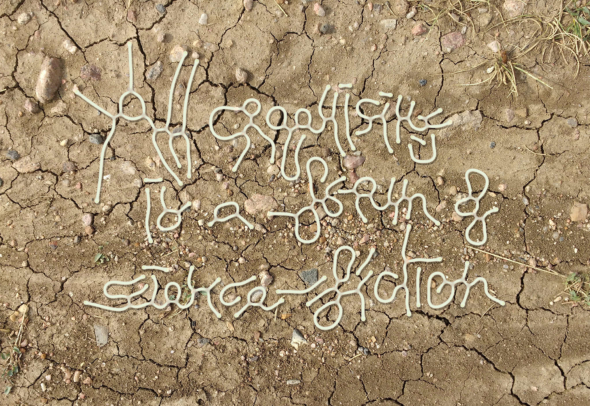 All organising
is a form of
science fiction